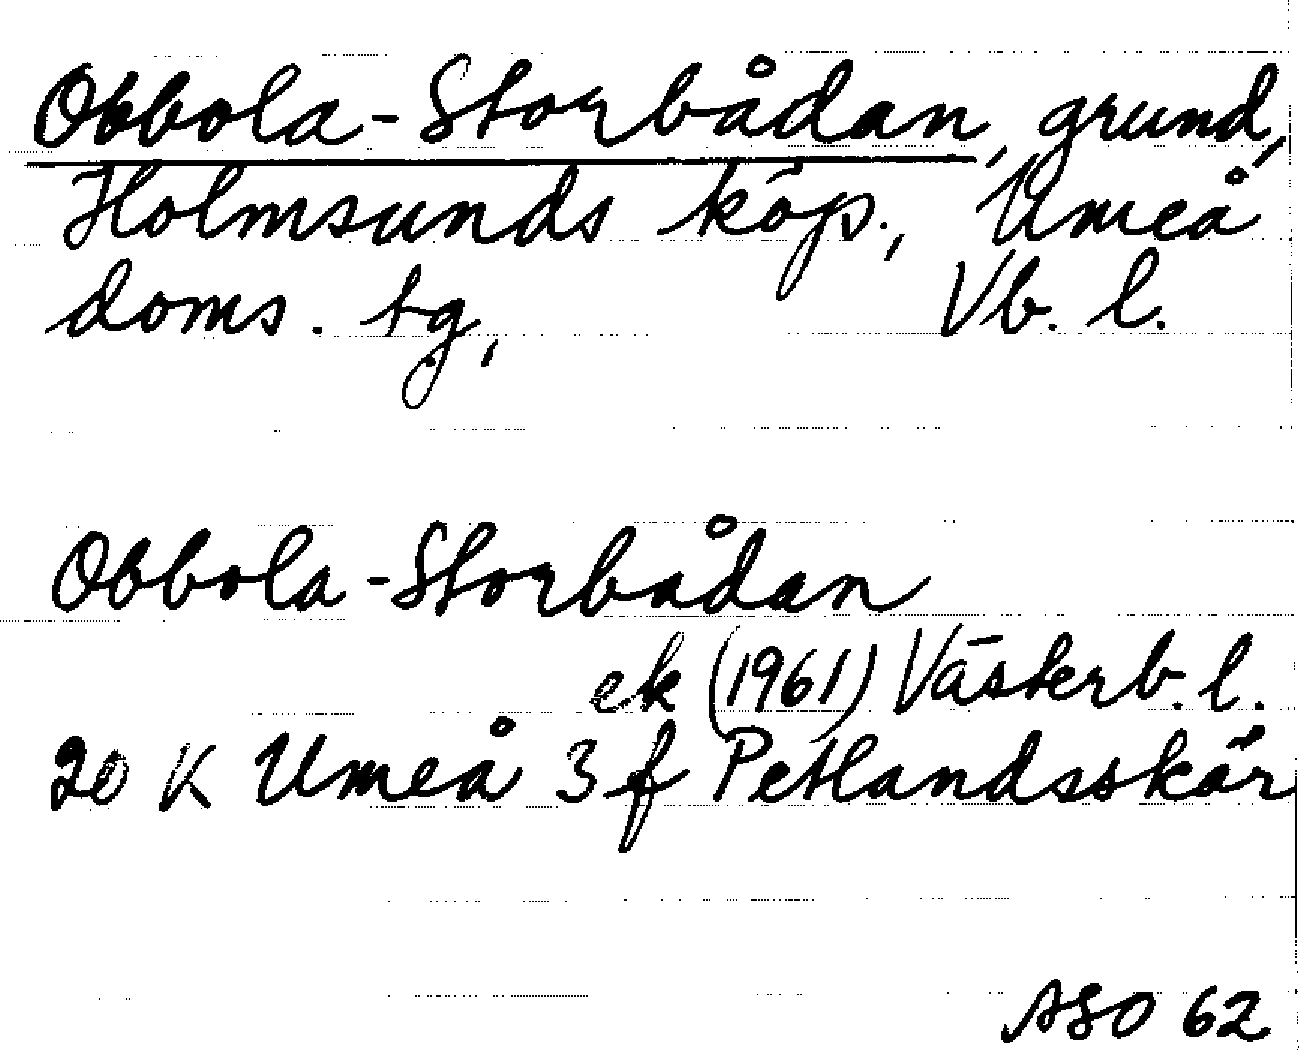 Obbola-Storbådan, grund,
Holmsunds köp., Umeå
doms. tg, Vb. l.
Obbola-Storbådan
ek (1961) Västerb. l.
20 K Umeå 3 f Petlandsskär
ASO 62